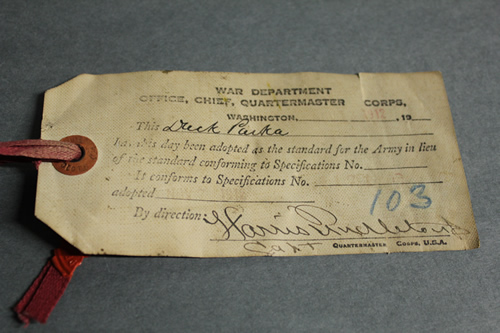 WAR DEPARTMENT
OFFICE, CHIEF, QUARTERMASTER CORPS,
WASHINGTON, 19
This Duck Parka
has this day been adopted as the standard for the Army in lieu
of the standard conforming to Specifications No.
It conforms to Specifications No.
adopted
103
By direction: Harris
Capt QUARTERMASTER CORPS, U.S.A.